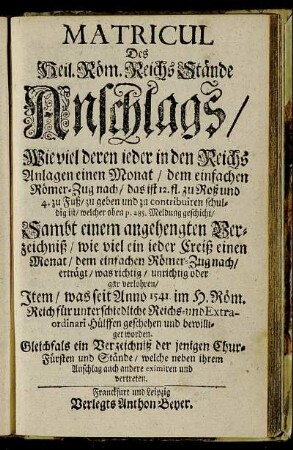 MATRICUL
Des
Heil. Röm. Reichs Stände
Anschlags/
Wie viel deren ieder in den Reichs
Anlagen einen Monat / dem einfachen
Römer-Zug nach / das ist 12. fl. zu Roß und
4. zu Fuß / zu geben und zu contribuiren schul-
dig ist / welcher oben p. 295. Meldung geschicht /
Sambt einem angehengten Ver-
zeichniß / wie viel ein ieder Creiß einen
Monat / dem einfachen Römer-Zug nach /
erträgt / was richtig / unrichtig oder
gar verlohren /
Item / was seit Anno 1541. im H. Röm.
Reich für unterschiedliche Reichs- und Extra-
ordinari Hülffen geschehen und bewilli-
get worden.
Gleichfals ein Verzeichniß der jenigen Chur-
Fürsten und Stände / welche neben ihrem
Anschlag auch andere eximiren und
vertreten.
Franckfurt und Leipzig
Verlegts Anthon Beyer.